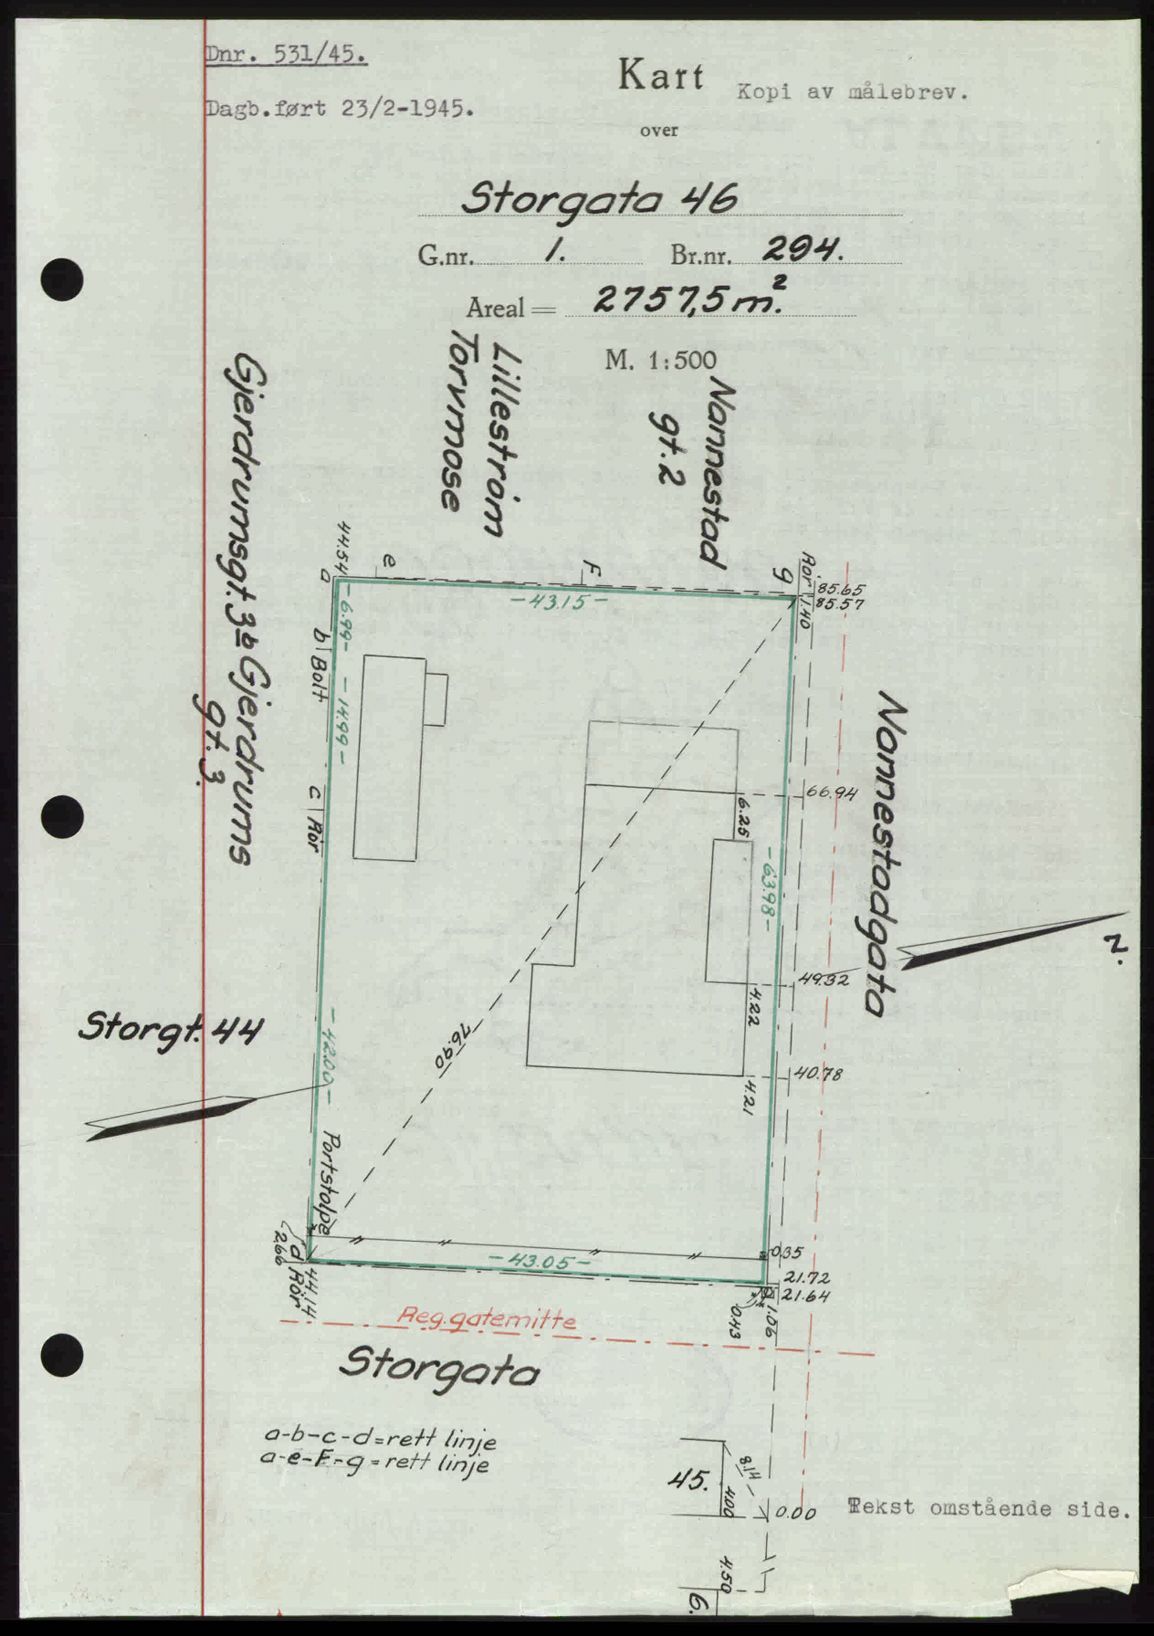 Dnr. 531/45.
Dagb.ført 23/2-1945.
Kart
Kopi av målebrev.
over
Storgata 46
G.nr. 1. Br.nr. 294.
Areal = 2757,5 m².
M. 1:500
Lillestrøm
Torvmose
Nannestad
gt. 2
Gjerdrumsgt. 3b Gjerdrums
gt. 3.
44.54
a
e
F
g
Rör
1.40
85.65
85.57
-43.15-
-6.99-
b
Bolt
-14.99-
c
Rör
Nannestadgata
66.94
6.25
-63.98-
49.32
4.22
40.78
4.21
N.
Storgt. 44
-42.00-
76.90
Portstolpe
d
Rör
2.66
44.14
-43.05-
0.35
21.72
21.64
0.43
1.06
Reg.gatemitte
Storgata
a-b-c-d=rett linje
a-e-F-g=rett linje
45.
8.14
4.00
0.00
Tekst omstående side.
4.50
6.